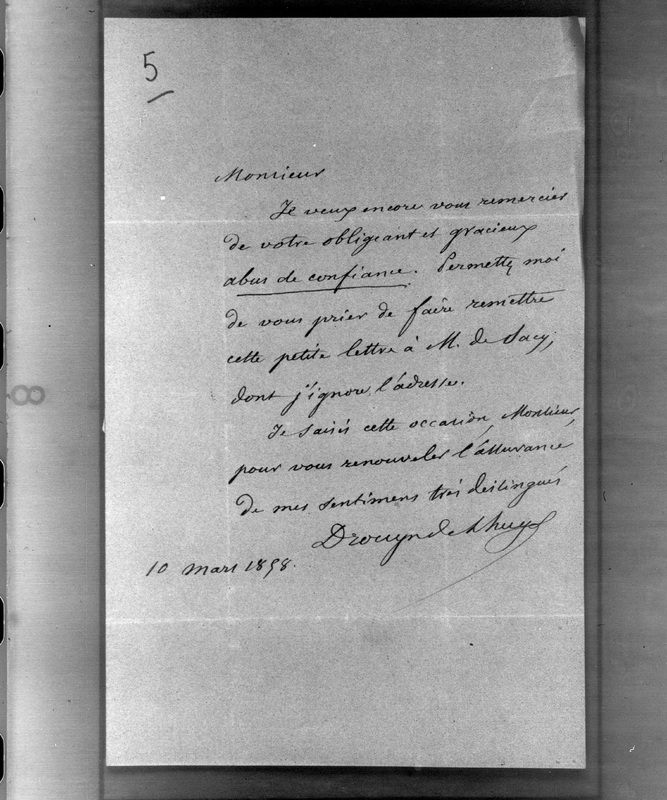 5
Monsieur
Je veux encore vous remercier
de votre obligeant et gracieux
abus de confiance. Permettez moi
de vous prier de faire remettre
cette petite lettre à M. de Sacy,
dont j'ignore l'adresse.
Je saisis cette occasion, Monsieur,
pour vous renouveler l'assurance
de mes sentimens très distingués
Drouyn de Lhuys
10 mars 1858.
8